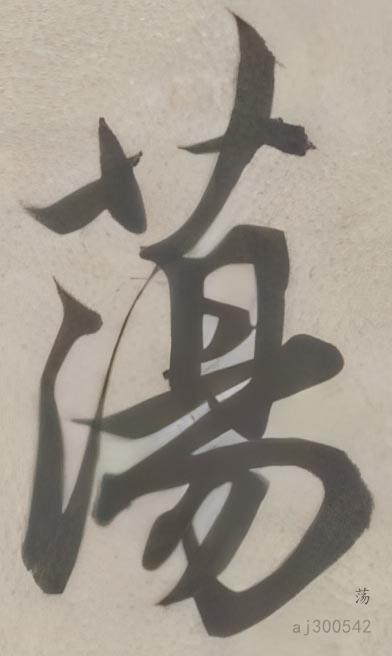 蕩
荡
aj300542